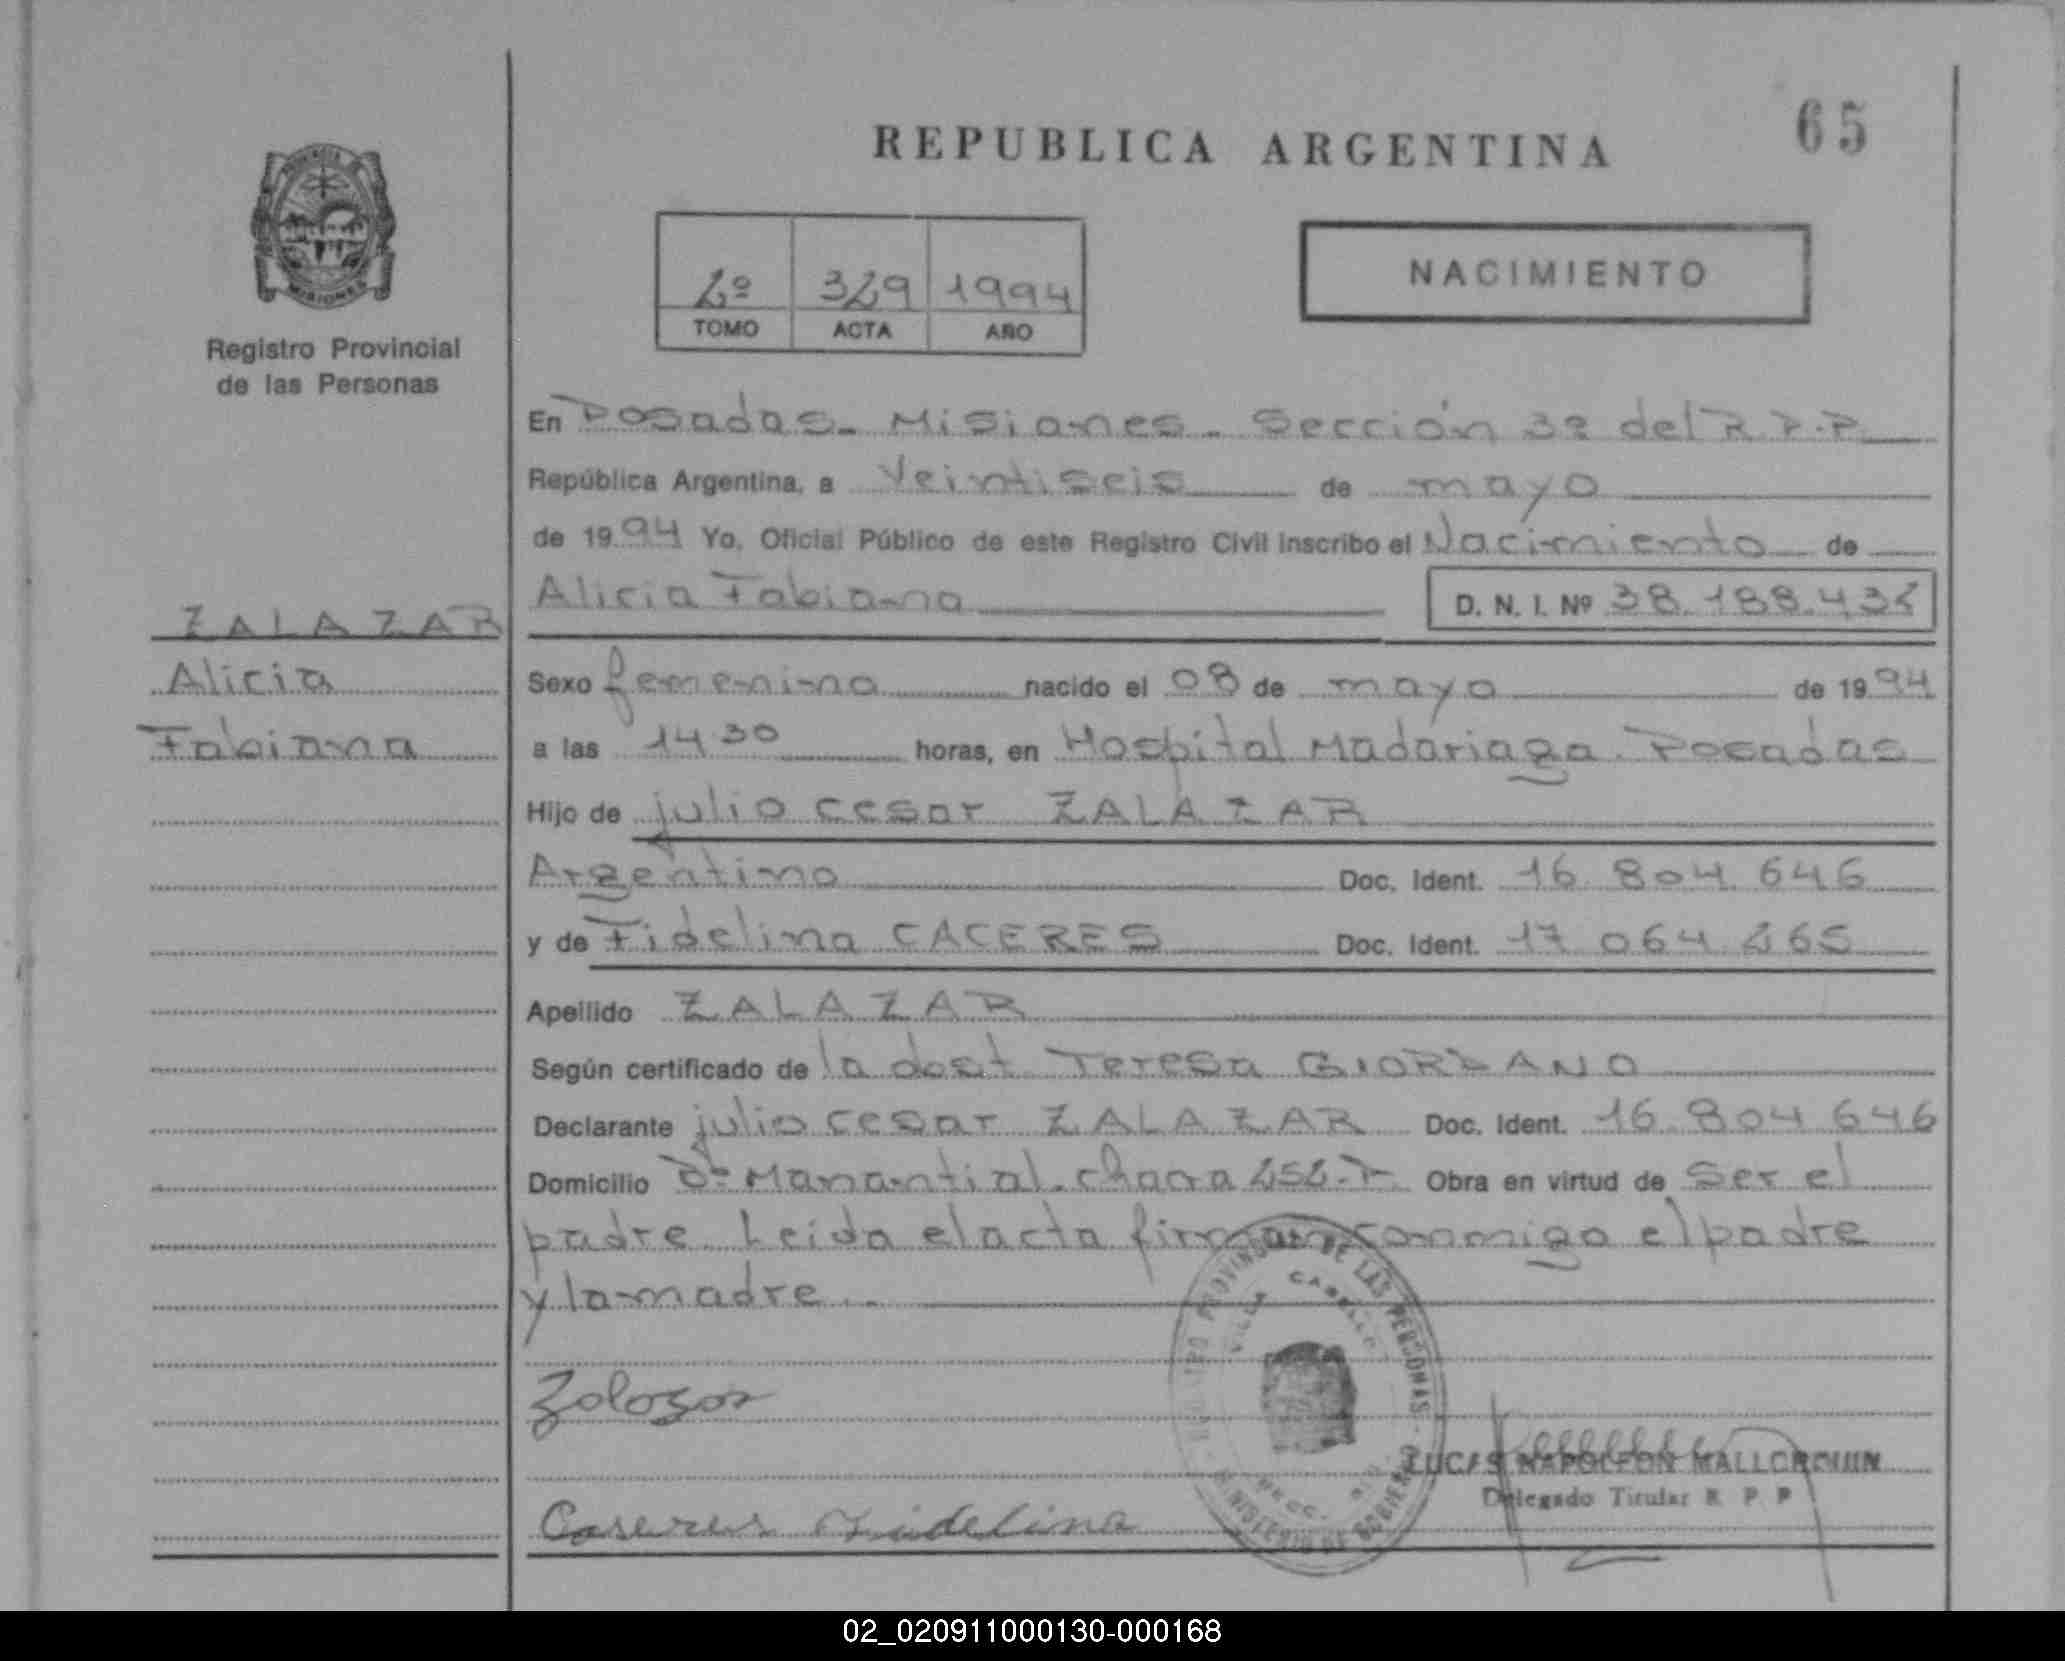 REPUBLICA ARGENTINA
65
PROVINCIA DE
MISIONES
Registro Provincial
de las Personas
2º 329 1994
TOMO ACTA AÑO
NACIMIENTO
En Posadas - Misiones - Sección 3ª del R.P.P.
República Argentina, a Veintiseis de mayo
de 1994 Yo, Oficial Público de este Registro Civil inscribo el Nacimiento de
Alicia Fabiana D. N. I. Nº
ZALAZAR
Alicia
Fabiana
Sexo femenino nacido el 08 de mayo de 1994
a las 14 30 horas, en Hospital Madariaga. Posadas
Hijo de julio cesar ZALAZAR
Argentino Doc. Ident. 16 804 646
y de Fidelina CACERES Doc. Ident. 17 064 265
Apellido ZALAZAR
Según certificado de la dost Teresa GIORDANO
Declarante julio cesar ZALAZAR Doc. Ident. 16 804 646
Domicilio Bº Manantial. chacra 252-P Obra en virtud de ser el
padre. Leida el acta firman conmigo el padre
y la madre..
Zalazar
REGISTRO PROVINCIAL DE LAS PERSONAS
VILLA CABELLO
MINISTERIO DE GOBIERNO
LUCAS NAPOLEON MALLORQUIN
Delegado Titular R P P
Caseres Fidelina
02_020911000130-000168